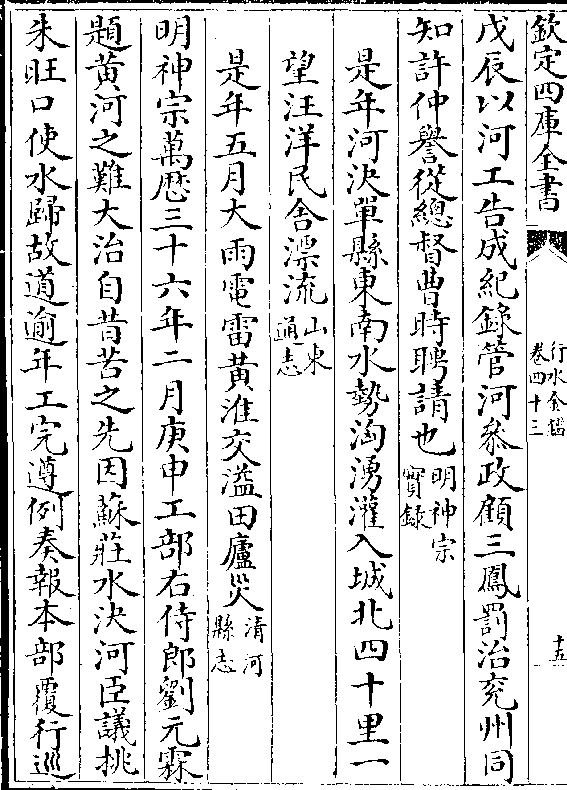 欽定四庫全書
行水金鑑
卷四十三
十五
戊辰以河工告成紀錄管河叅政顧三鳳罰治兖州同
知許仲譽從總督曹時聘請也明神宗實錄
是年河決單縣東南水勢洶湧灌入城北四十里一
望汪洋民舍漂流山東通志
是年五月大雨電雷黃淮交溢田廬災清河縣志
明神宗萬厯三十六年二月庚申工部右侍郎劉元霖
題黃河之難大治自昔苦之先因蘇莊水決河臣議挑
朱旺口使水歸故道逾年工完遵例奏報本部覆行巡